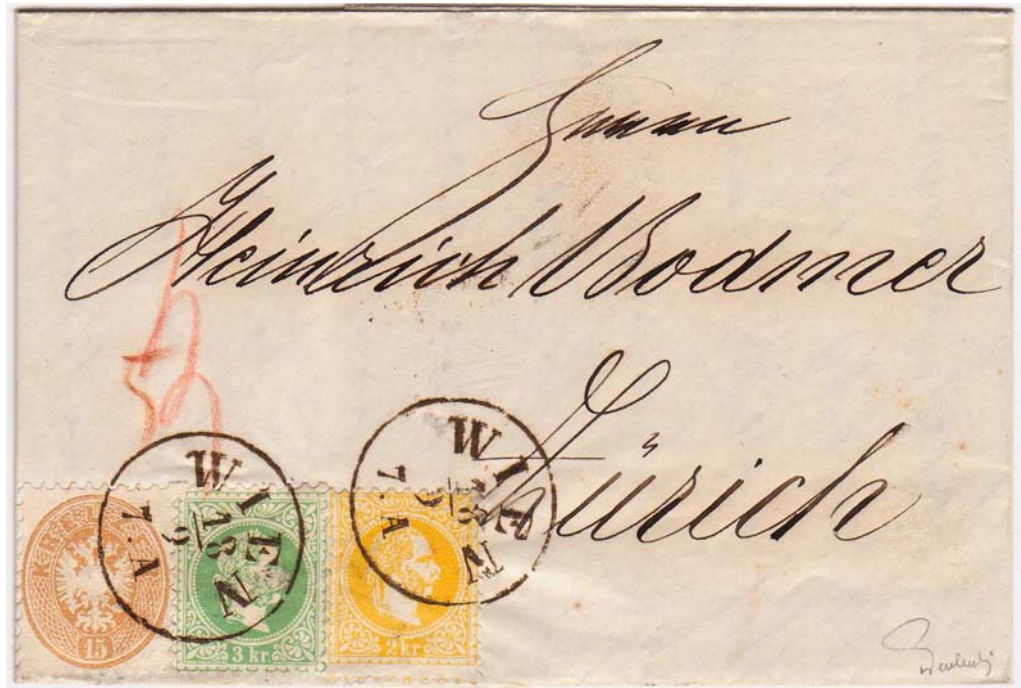 Herrn
Heinrich Bodmer
Zürich
WIEN
18
9
7.A
WIEN
18
9
7.A
KREUZER
15
3 kr.
2 kr.